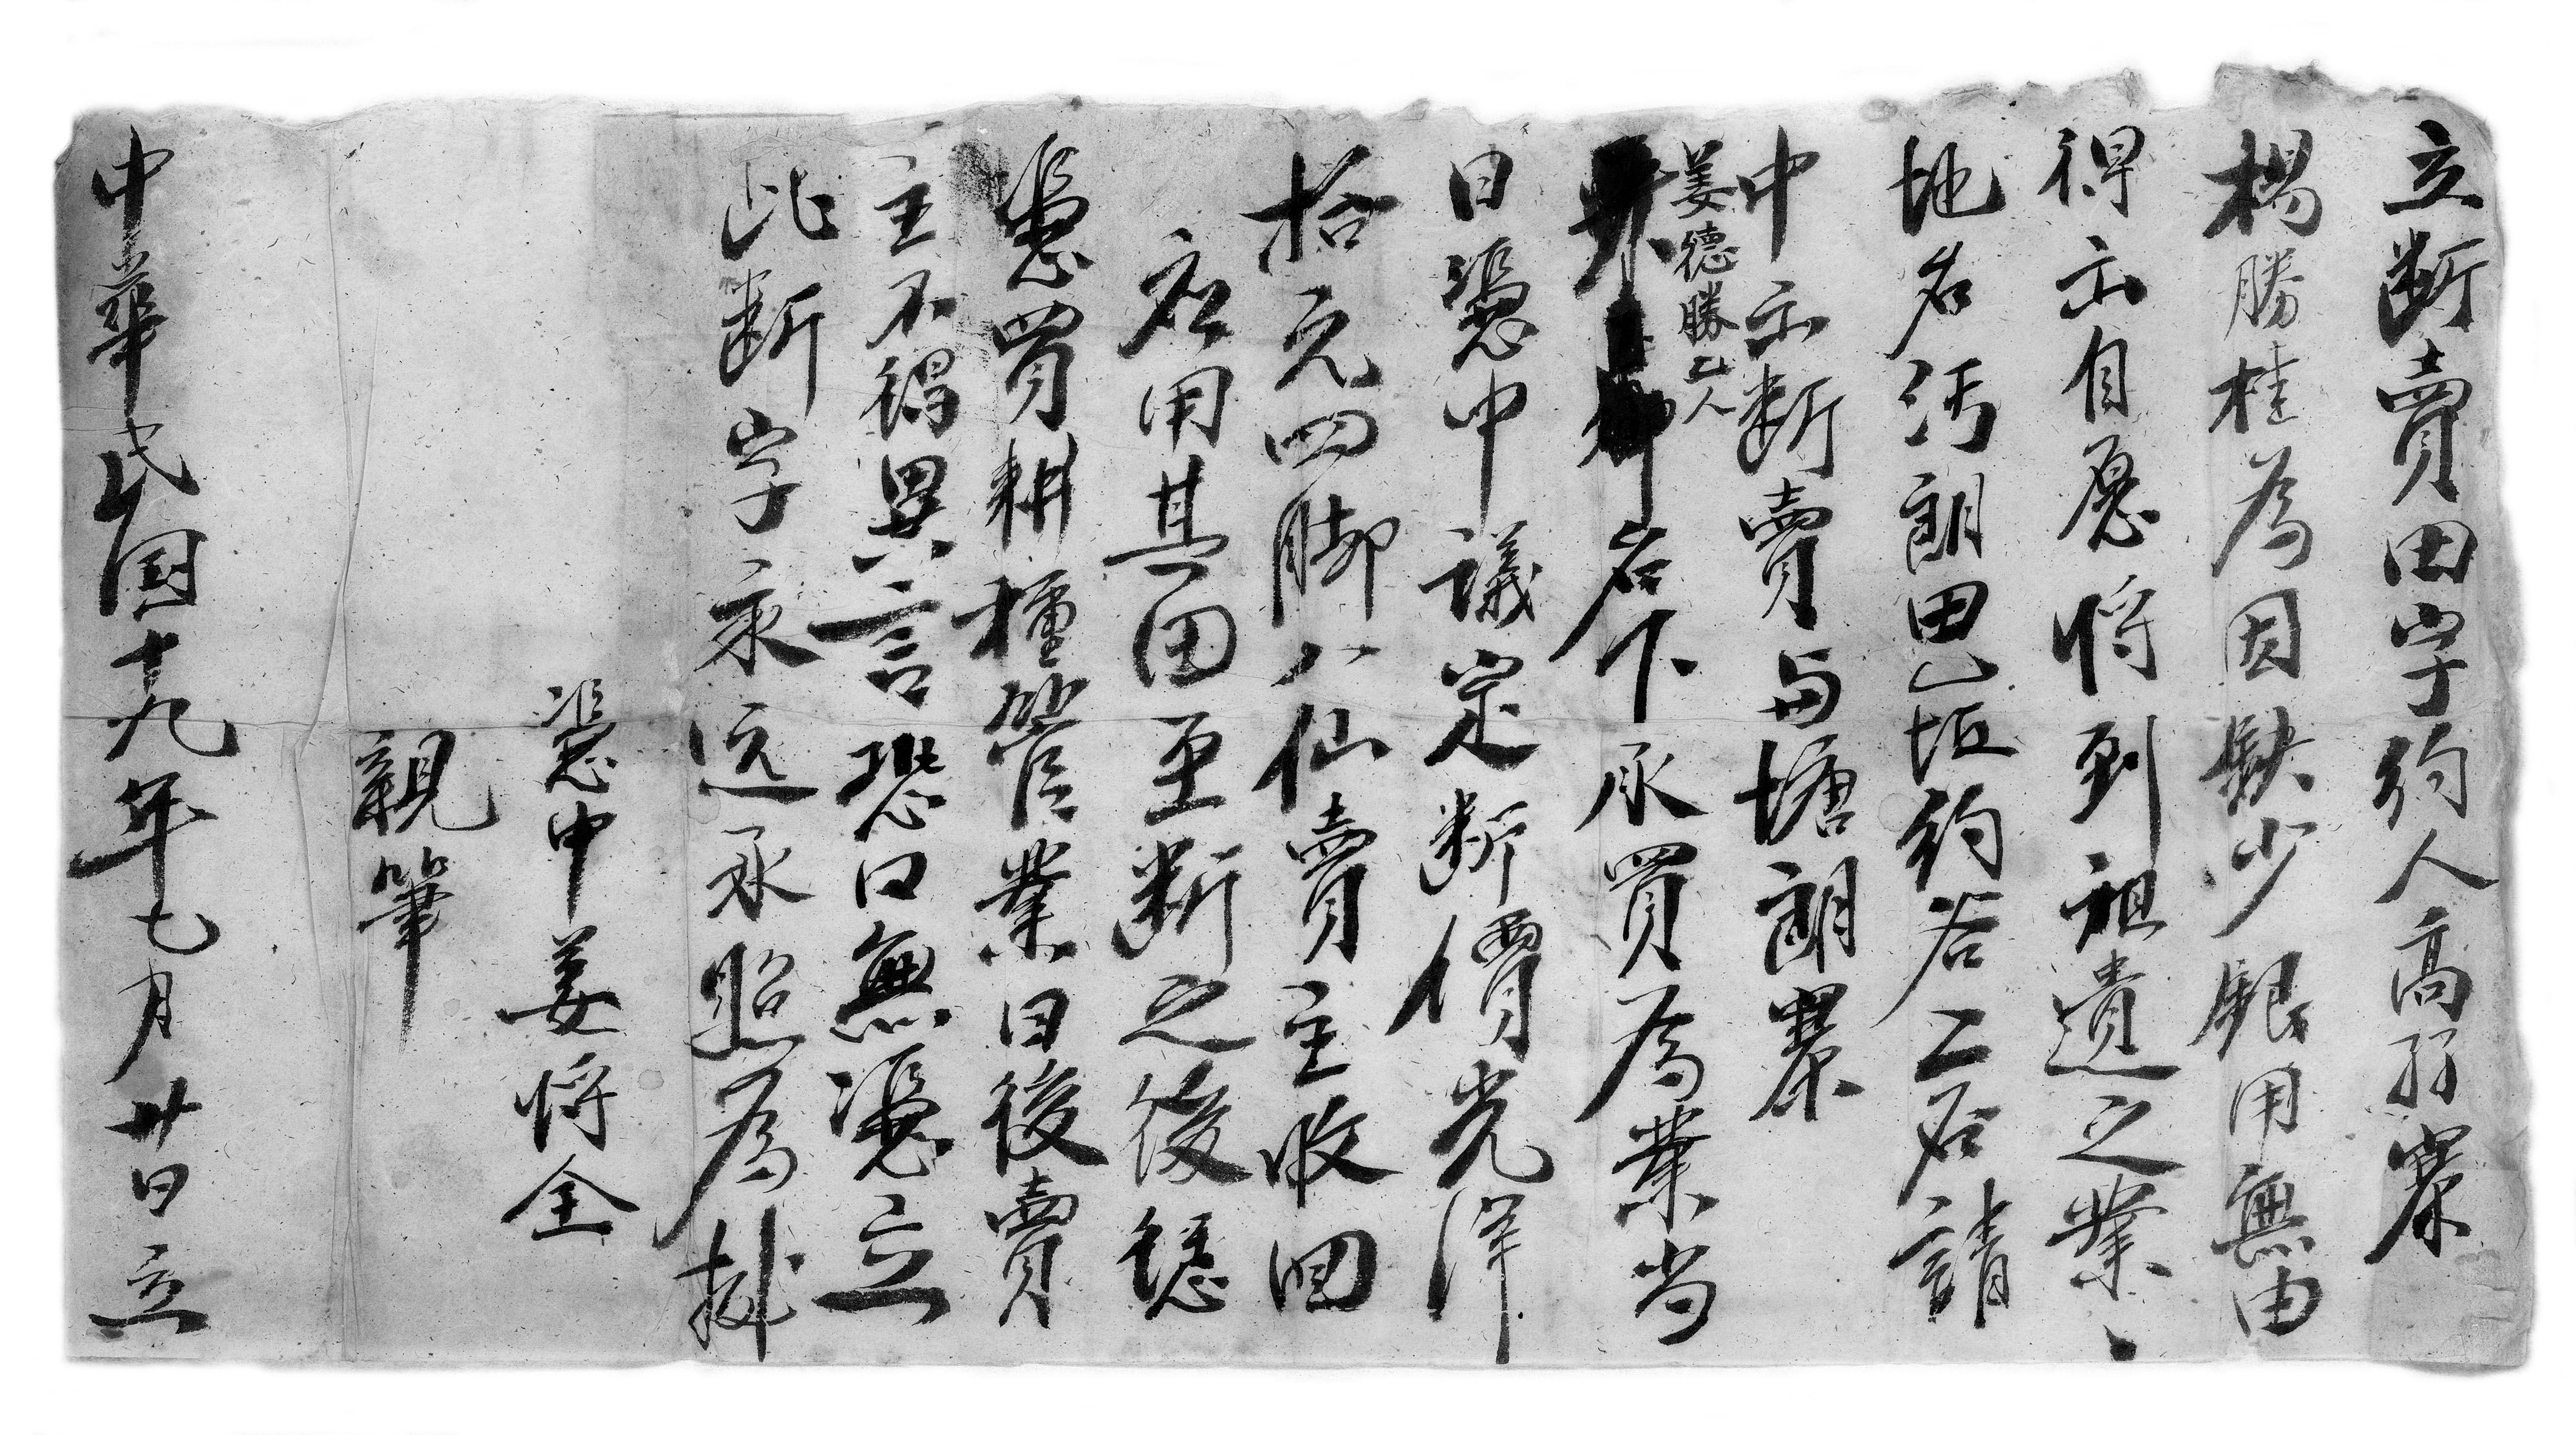 立断賣田字約人高孖寨
楊勝桂為因缺少銀用無由
得出自愿将到祖遗之業
地名污朗田一坵約谷二石請
中出断賣与塘朗寨
姜德勝二人
名下承買為業当
日憑中議定断價光洋
拾元四脚八仙賣主收回
应用其田至断之後聽
憑買耕種管業日後賣
主不得異言恐口無憑立
此断字永远承照為拠
憑中姜将全
親筆
中華民国十九年七月廿日立